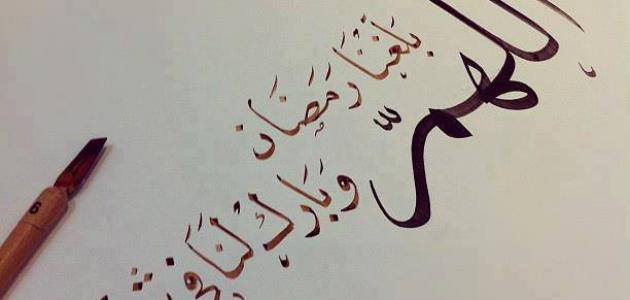 اللهمّ
بَلّغْنَا رَمَضَان
وبَارِكْ لَنَا في